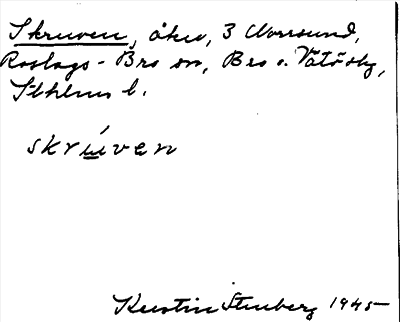 Skruven, åker, 3 Norrsund,
Roslags-Bro sn, Bro o. Vätö skg,
Sthlms l.
skrúven
Kerstin Stenberg 1945